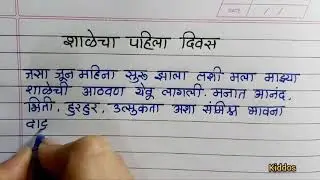 शाळेचा पहिला दिवस
जसा जून महिना सुरू झाला तशी मला माझ्या
शाळेची आठवण येवू लागली. मनात आनंद,
भिती, हुरहुर, उत्सुकता अशा संमिश्र भावना
दाट
Kiddos